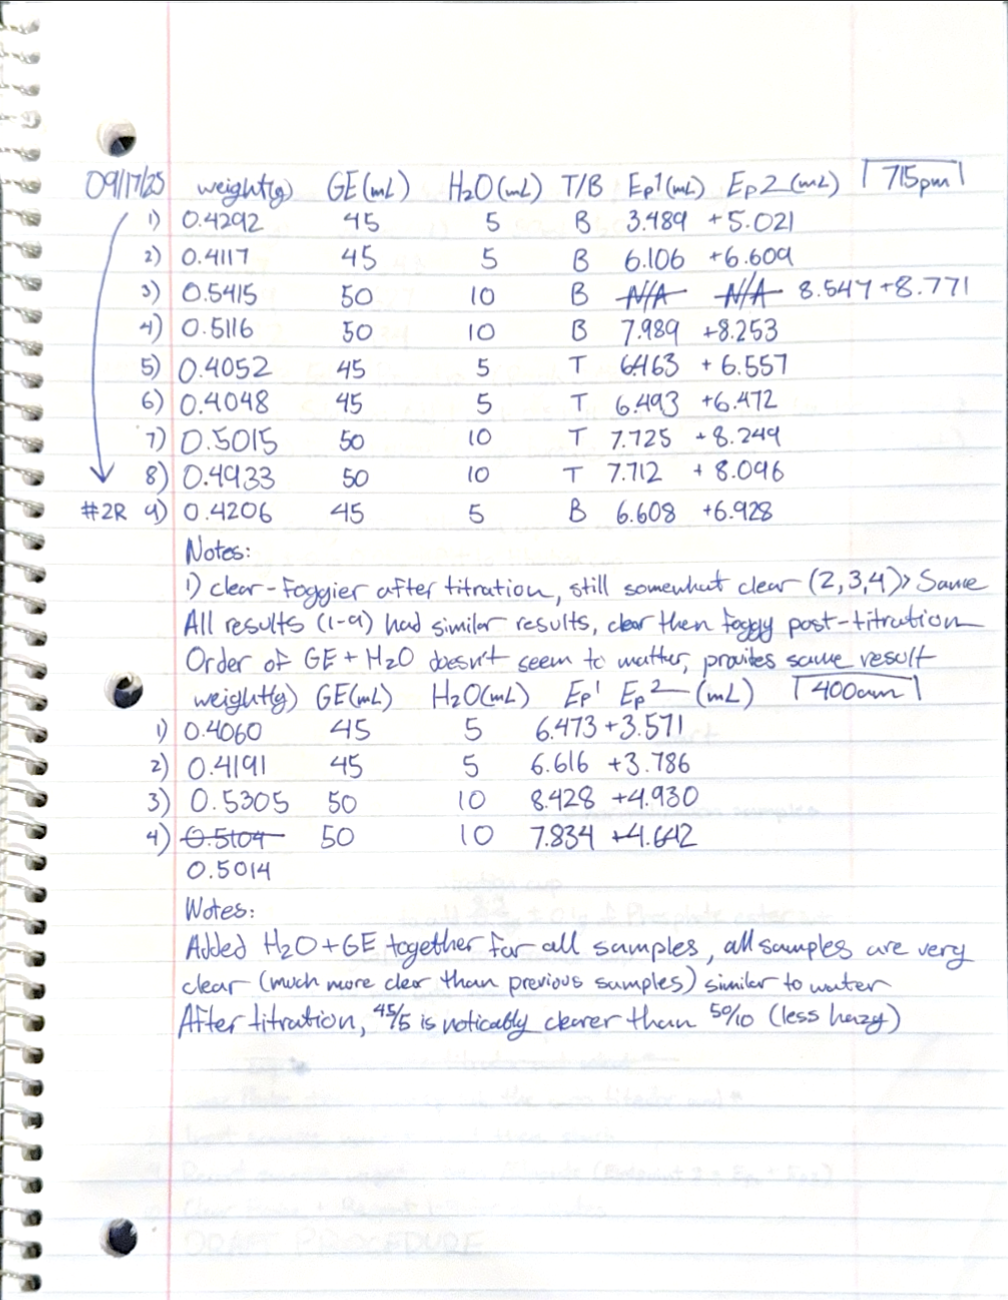 09/17/25 weight(g) GE(mL) H2O(mL) T/B Ep1(mL) Ep2(mL) 715pm
1) 0.4292 45 5 B 3.489 +5.021
2) 0.4117 45 5 B 6.106 +6.609
3) 0.5415 50 10 B N/A N/A 8.547+8.771
4) 0.5116 50 10 B 7.989 +8.253
5) 0.4052 45 5 T 6.463 + 6.557
6) 0.4048 45 5 T 6.493 +6.472
7) 0.5015 50 10 T 7.725 + 8.249
8) 0.4933 50 10 T 7.712 + 8.096
#2R 9) 0.4206 45 5 B 6.608 +6.928
Notes:
1) clear - Foggier after titration, still somewhat clear (2,3,4)> Same
All results (1-9) had similar results, clear then foggy post-titration
Order of GE + H2O doesn't seem to matter, provites same result
weight(g) GE(mL) H2O(mL) Ep1 Ep2 (mL) 400am
1) 0.4060 45 5 6.473 +3.571
2) 0.4191 45 5 6.616 +3.786
3) 0.5305 50 10 8.428 +4.930
4) 0.5104 50 10 7.834 +4.642
0.5014
Notes:
Added H2O+GE together for all samples, all samples are very
clear (much more clear than previous samples) similar to water
After titration, 45/5 is noticably clearer than 50/10 (less hazy)
DRAFT PROCEDURE